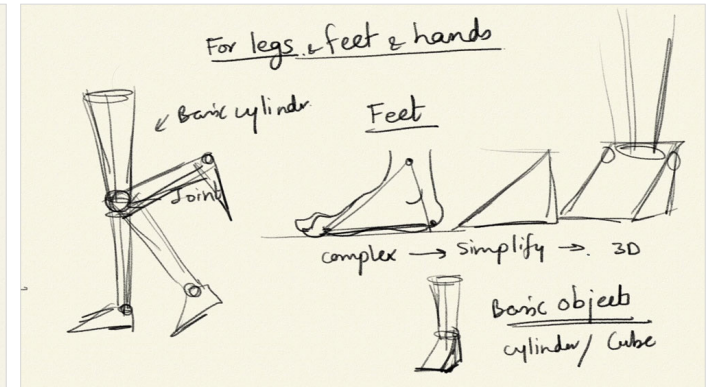 For legs & feet & hands
Basic cylinder
Feet
Joint
complex → Simplify → 3D
Basic objects
cylinder/ Cube